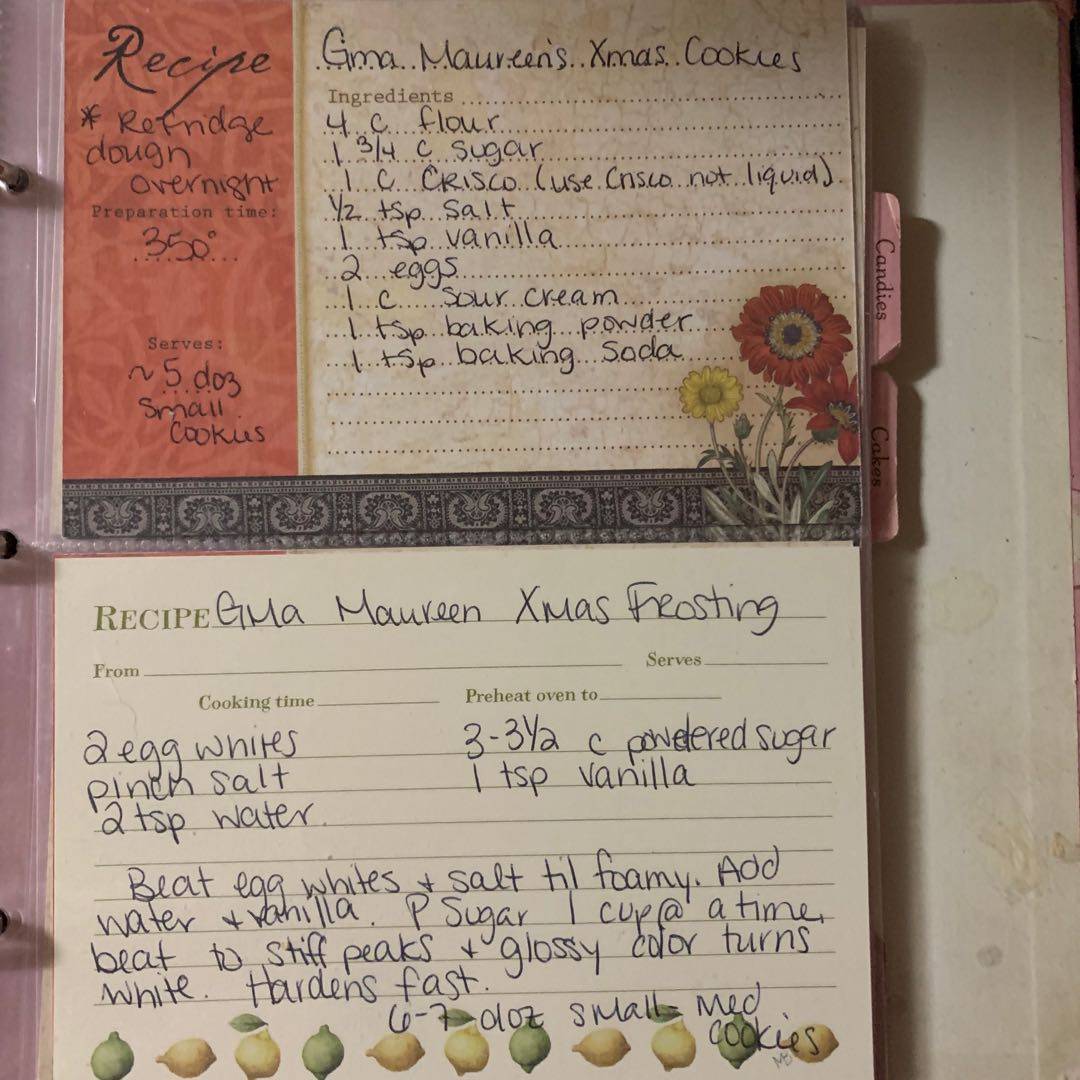 Recipe
* Refridge
dough
overnight
Preparation time:
350°
Serves:
~5 doz
Small
Cookies
Gma Maureen's Xmas Cookies
Ingredients
4 c flour
1 3/4 c sugar
1 c CRISCO (use Crisco not liquid)
1/2 tsp salt
1 tsp vanilla
2 eggs
1 c sour cream
1 tsp baking powder
1 tsp baking soda
Candies
Cakes
RECIPE GMa Maureen Xmas Frosting
From Serves
Cooking time Preheat oven to
2 egg whites 3-3 1/2 c powdered sugar
pinch salt 1 tsp vanilla
2 tsp water
Beat egg whites + salt til foamy. Add
water + vanilla. P Sugar 1 cup @ a time,
beat to stiff peaks + glossy color turns
white. Hardens fast.
6-7 doz small-med
cookies